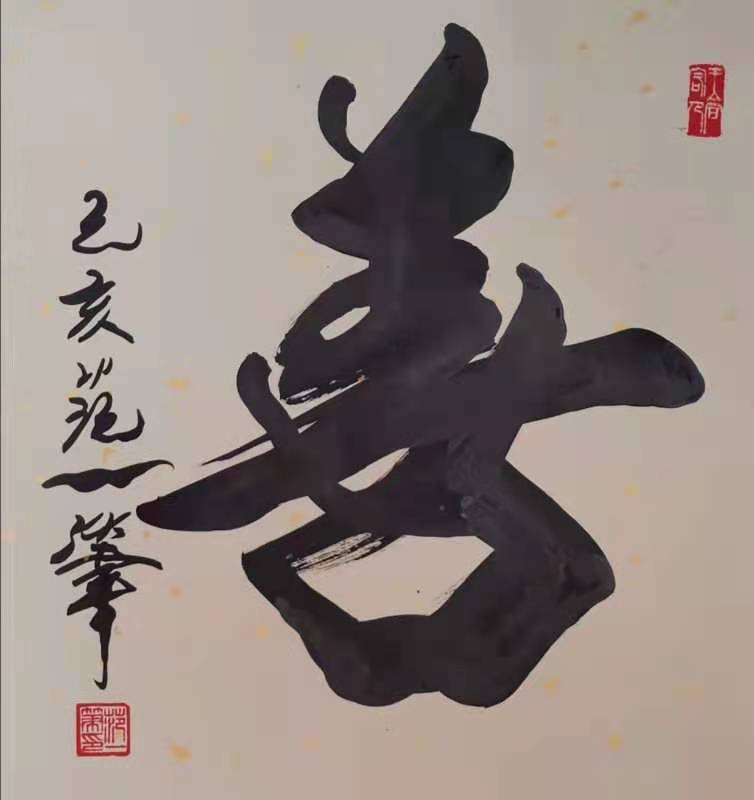 善
己亥范一筆